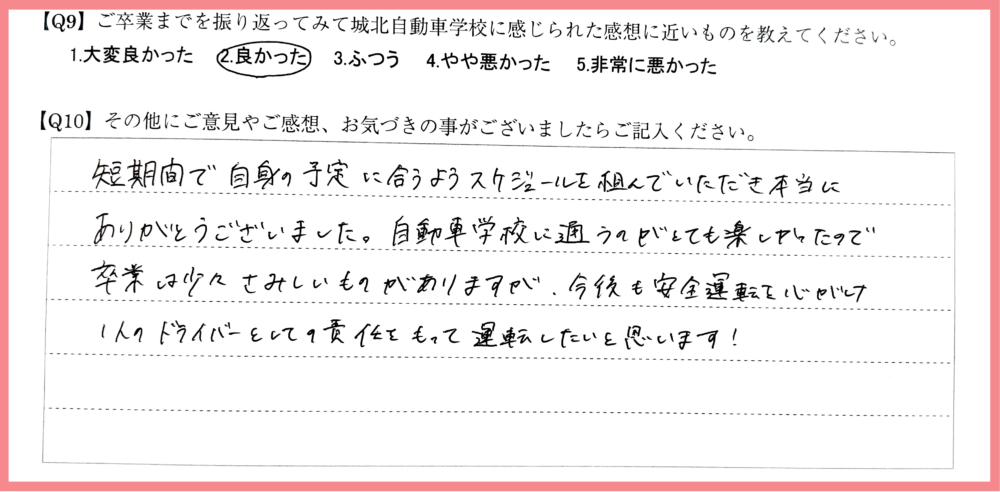 【Q9】ご卒業までを振り返ってみて城北自動車学校に感じられた感想に近いものを教えてください。
1.大変良かった 2.良かった 3.ふつう 4.やや悪かった 5.非常に悪かった
【Q10】その他にご意見やご感想、お気づきの事がございましたらご記入ください。
短期間で自身の予定に合うようスケジュールを組んでいただき本当に
ありがとうございました。自動車学校に通うのがとても楽しかったので
卒業は少々さみしいものがありますが、今後も安全運転を心がけ
1人のドライバーとしての責任をもって運転したいと思います!